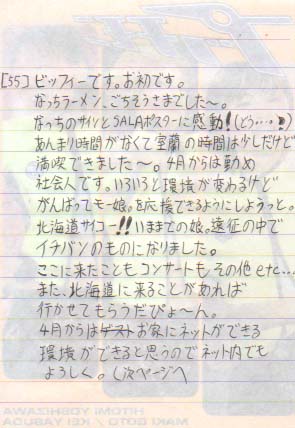 [55] ビッフィーです。お初です。
なっちラーメン、ごちそうさまでした〜。
なっちのサインとSALAポスターに感動!
あんまり時間がなくて室蘭の時間は少しだけど
満喫できました〜。4月からは勤め
社会人です。いろいろと環境が変わるけど
がんばってモー娘。を応援できるようにしようっと。
北海道サイコー!!いままでの娘。遠征の中で
イチバンのものになりました。
ここに来たことも コンサートも その他 etc...
また、北海道に来ることがあれば
行かせてもらうだぴょ〜ん。
4月からはゲストお家にネットができる
環境ができると思うのでネット内でも
よろしく。(次ページへ
HITOMI YOSHIZAWA
MAKI GOTO / KEI YASUDA